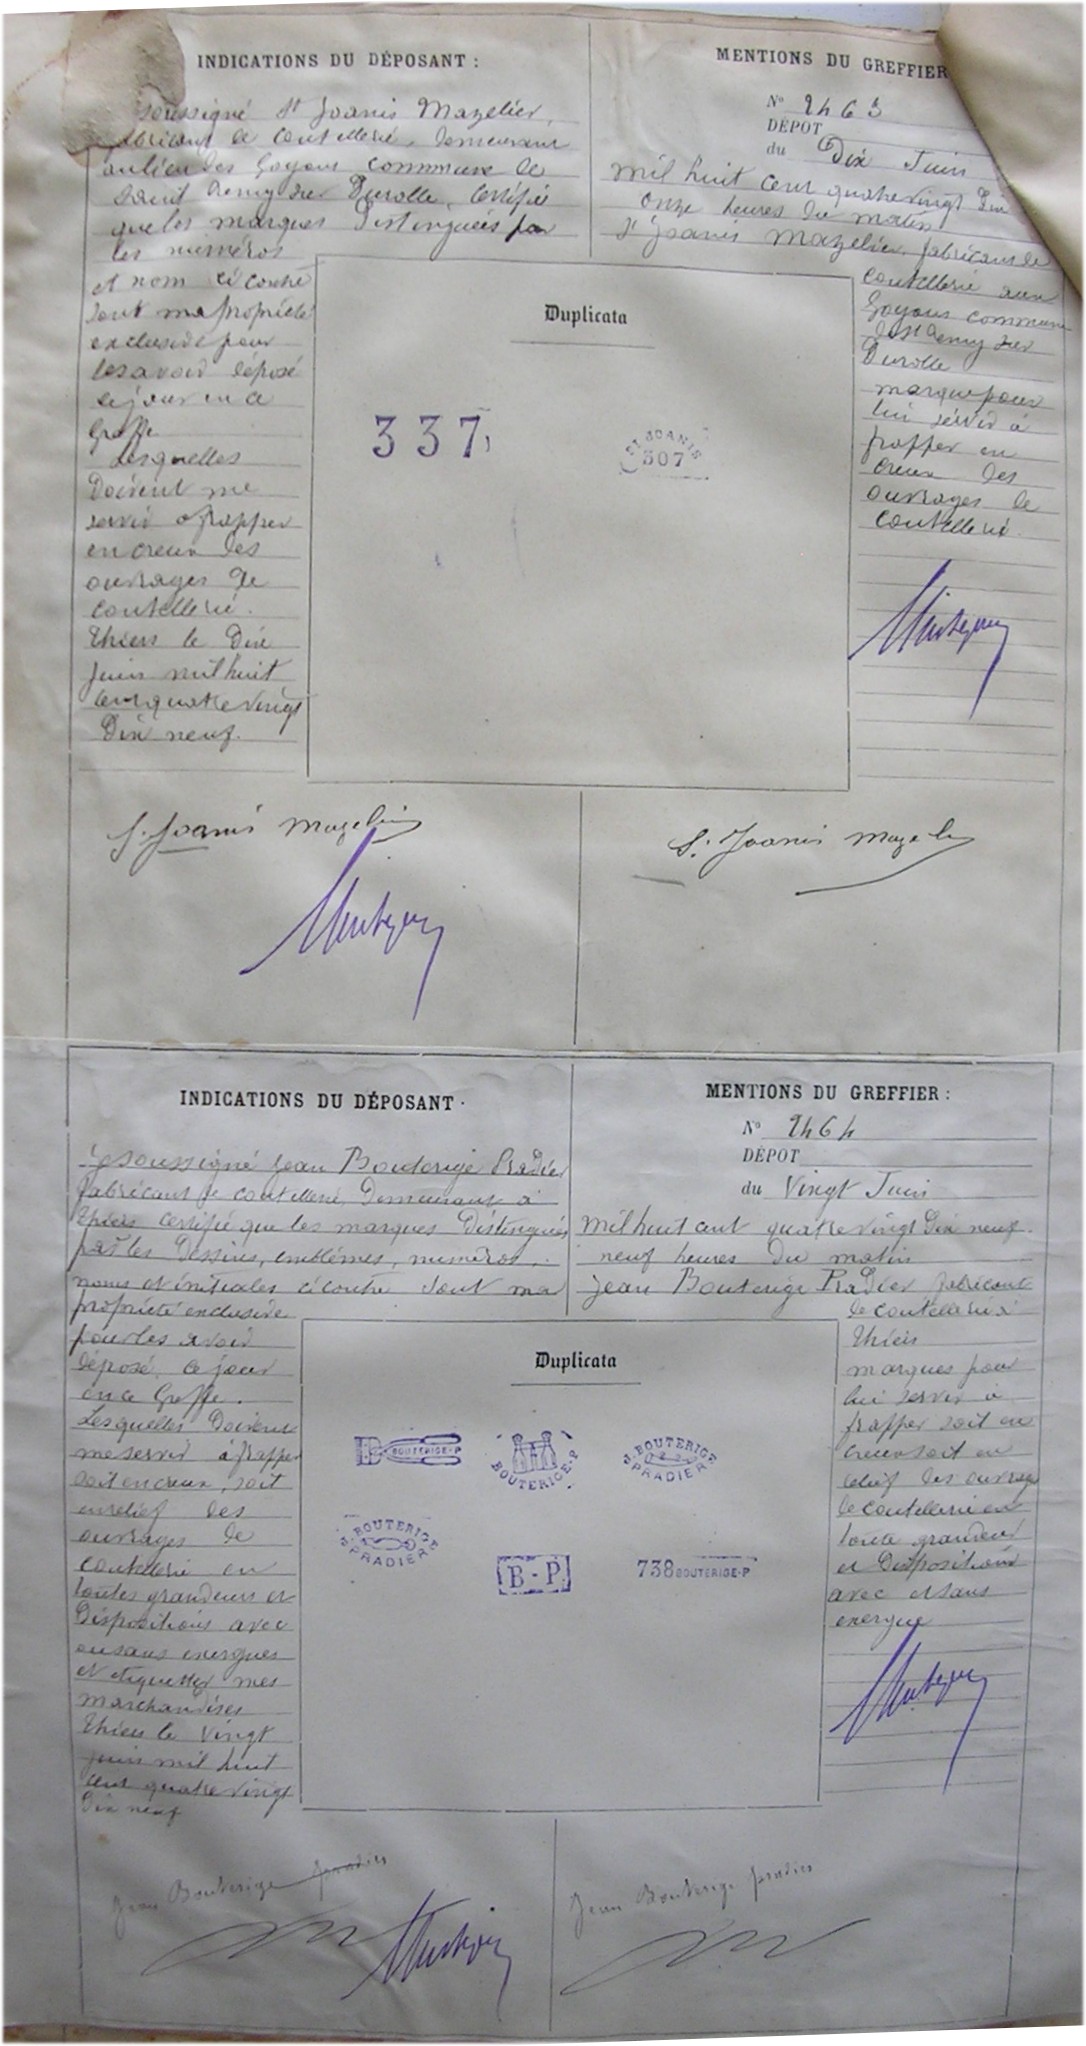 INDICATIONS DU DÉPOSANT :
soussigné St Joanis Mazelier,
fabricant de coutellerie, demeurant
au lieu des Goyons commune de
Saint Remy sur Durolle, certifie
que les marques distinguées par
les numéros
et nom ci contre
sont ma propriété
exclusive pour
les avoir déposé
ce jour en ce
Greffe
Lesquelles
doivent me
servir à frapper
en creux des
ouvrages de
coutellerie.
Thiers le Dix
Juin mil huit
cent quatre vingt
Dix neuf.
MENTIONS DU GREFFIER
N° 2463
DÉPOT
du Dix Juin
mil huit cent quatre vingt Dix
onze heures du matin
St Joanis Mazelier, fabricant de
coutellerie aux
Goyons commune
de St Remy sur
Durolle
marque pour
lui servir à
frapper en
creux des
ouvrages de
coutellerie.
Duplicata
337
ST JOANIS
307
St Joanis Mazelier
St Joanis Mazelier
INDICATIONS DU DÉPOSANT
Je soussigné Jean Bouterige Pradier
fabricant de coutellerie, demeurant à
Thiers certifie que les marques distinguées
par les dessins, emblèmes, numéros,
noms et initiales ci contre sont ma
propriété exclusive
pour les avoir
déposé ce jour
en ce Greffe.
Lesquelles doivent
me servir à frapper
soit en creux, soit
en relief des
ouvrages de
coutellerie en
toutes grandeurs et
dispositions avec
ou sans exergues
et étiqueter mes
marchandises
Thiers le Vingt
Juin mil huit
cent quatre vingt
Dix neuf
MENTIONS DU GREFFIER :
N° 2464
DÉPOT
du Vingt Juin
mil huit cent quatre vingt Dix neuf.
neuf heures du matin
Jean Bouterige Pradier fabricant
de coutellerie à
Thiers
marques pour
lui servir à
frapper soit en
creux soit en
relief des ouvrages
de coutellerie en
toute grandeur
et dispositions
avec et sans
exergue
Duplicata
BOUTERIGE-P
BOUTERIGE-P
J. BOUTERIGE
PRADIER
J. BOUTERIGE
PRADIER
B-P
738 BOUTERIGE-P
Jean Bouterige pradier
Jean Bouterige pradier